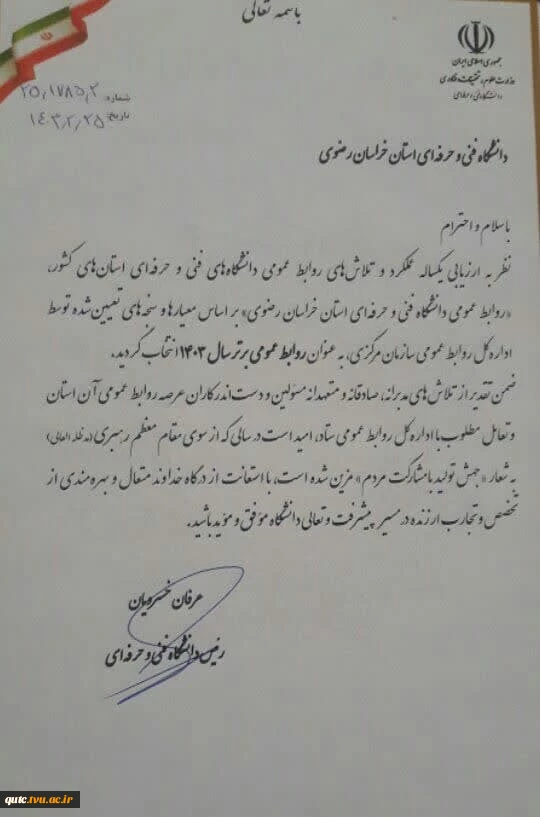 باسمه تعالی
جمهوری اسلامی ایران
وزارت علوم، تحقیقات و فناوری
دانشگاه فنی و حرفه‌ای
شماره: ۲۵,۱۷۸۵,۲
تاریخ: ۱۴۰۳,۲,۲۵
دانشگاه فنی و حرفه ای استان خراسان رضوی
با سلام و احترام
نظر به ارزیابی یکساله عملکرد و تلاش‌های روابط عمومی دانشگاه‌های فنی و حرفه‌ای استان‌های کشور،
«روابط عمومی دانشگاه فنی و حرفه‌ای استان خراسان رضوی» بر اساس معیارها و سنجه‌های تعیین‌شده توسط
اداره کل روابط عمومی سازمان مرکزی، به عنوان روابط عمومی برتر سال ۱۴۰۳ انتخاب گردید.
ضمن تقدیر از تلاش‌های مدبرانه، صادقانه و متعهدانه مسئولین و دست‌اندرکاران عرصه روابط عمومی آن استان
و تعامل مطلوب با اداره کل روابط عمومی ستاد، امید است در سالی که از سوی مقام معظم رهبری (مدظله العالی)
به شعار «جهش تولید با مشارکت مردم» مزین شده است، با استعانت از درگاه خداوند متعال و بهره مندی از
تخصص و تجارب ارزنده در مسیر پیشرفت و تعالی دانشگاه موفق و مؤید باشید.
عرفان خسرویان
رئیس دانشگاه فنی و حرفه‌ای
qutc.tvu.ac.ir